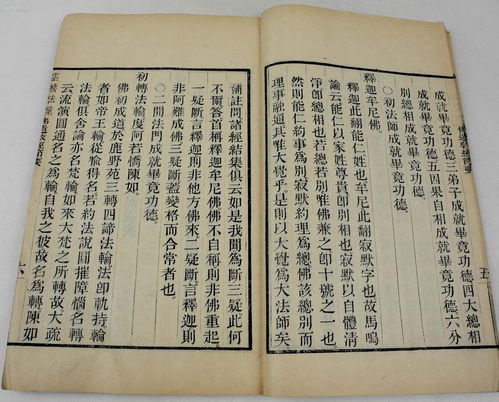 成就畢竟功德三弟子成就畢竟功德四大總相
成就畢竟功德五因果自相成就畢竟功德六分
別總相成就畢竟功德
〇初法師成就畢竟功德
釋迦牟尼佛
釋迦此翻能仁姓也牟尼此翻寂默字也故馬鳴
論云能仁以家姓尊貴卽別相也寂默以自體清
淨卽總相也若總若別唯佛兼之卽十號之一也
然則能仁約事爲別寂默約理爲總佛該總別而
理事融通其唯大覺乎是則以大覺爲大法師矣
五
補註問諸經結集俱云如是我聞爲斷三疑此何
不爾答首稱釋迦牟尼佛佛不自稱則非佛重起
一疑斷言釋迦則非他方佛來二疑斷言釋迦則
非阿難成佛三疑斷蓋變格而合常者也
〇二開法門成就畢竟功德
初轉法輪度阿若憍陳如
佛初成道於鹿野苑三轉四諦法輪法卽軌持輪
者如帝王輪從喻得名若約法說圓摧障惱名轉
法輪俱舍論亦名梵輪如來大梵之所轉故大疏
云流演圓通名之爲輪自我之彼故名爲轉陳如
六